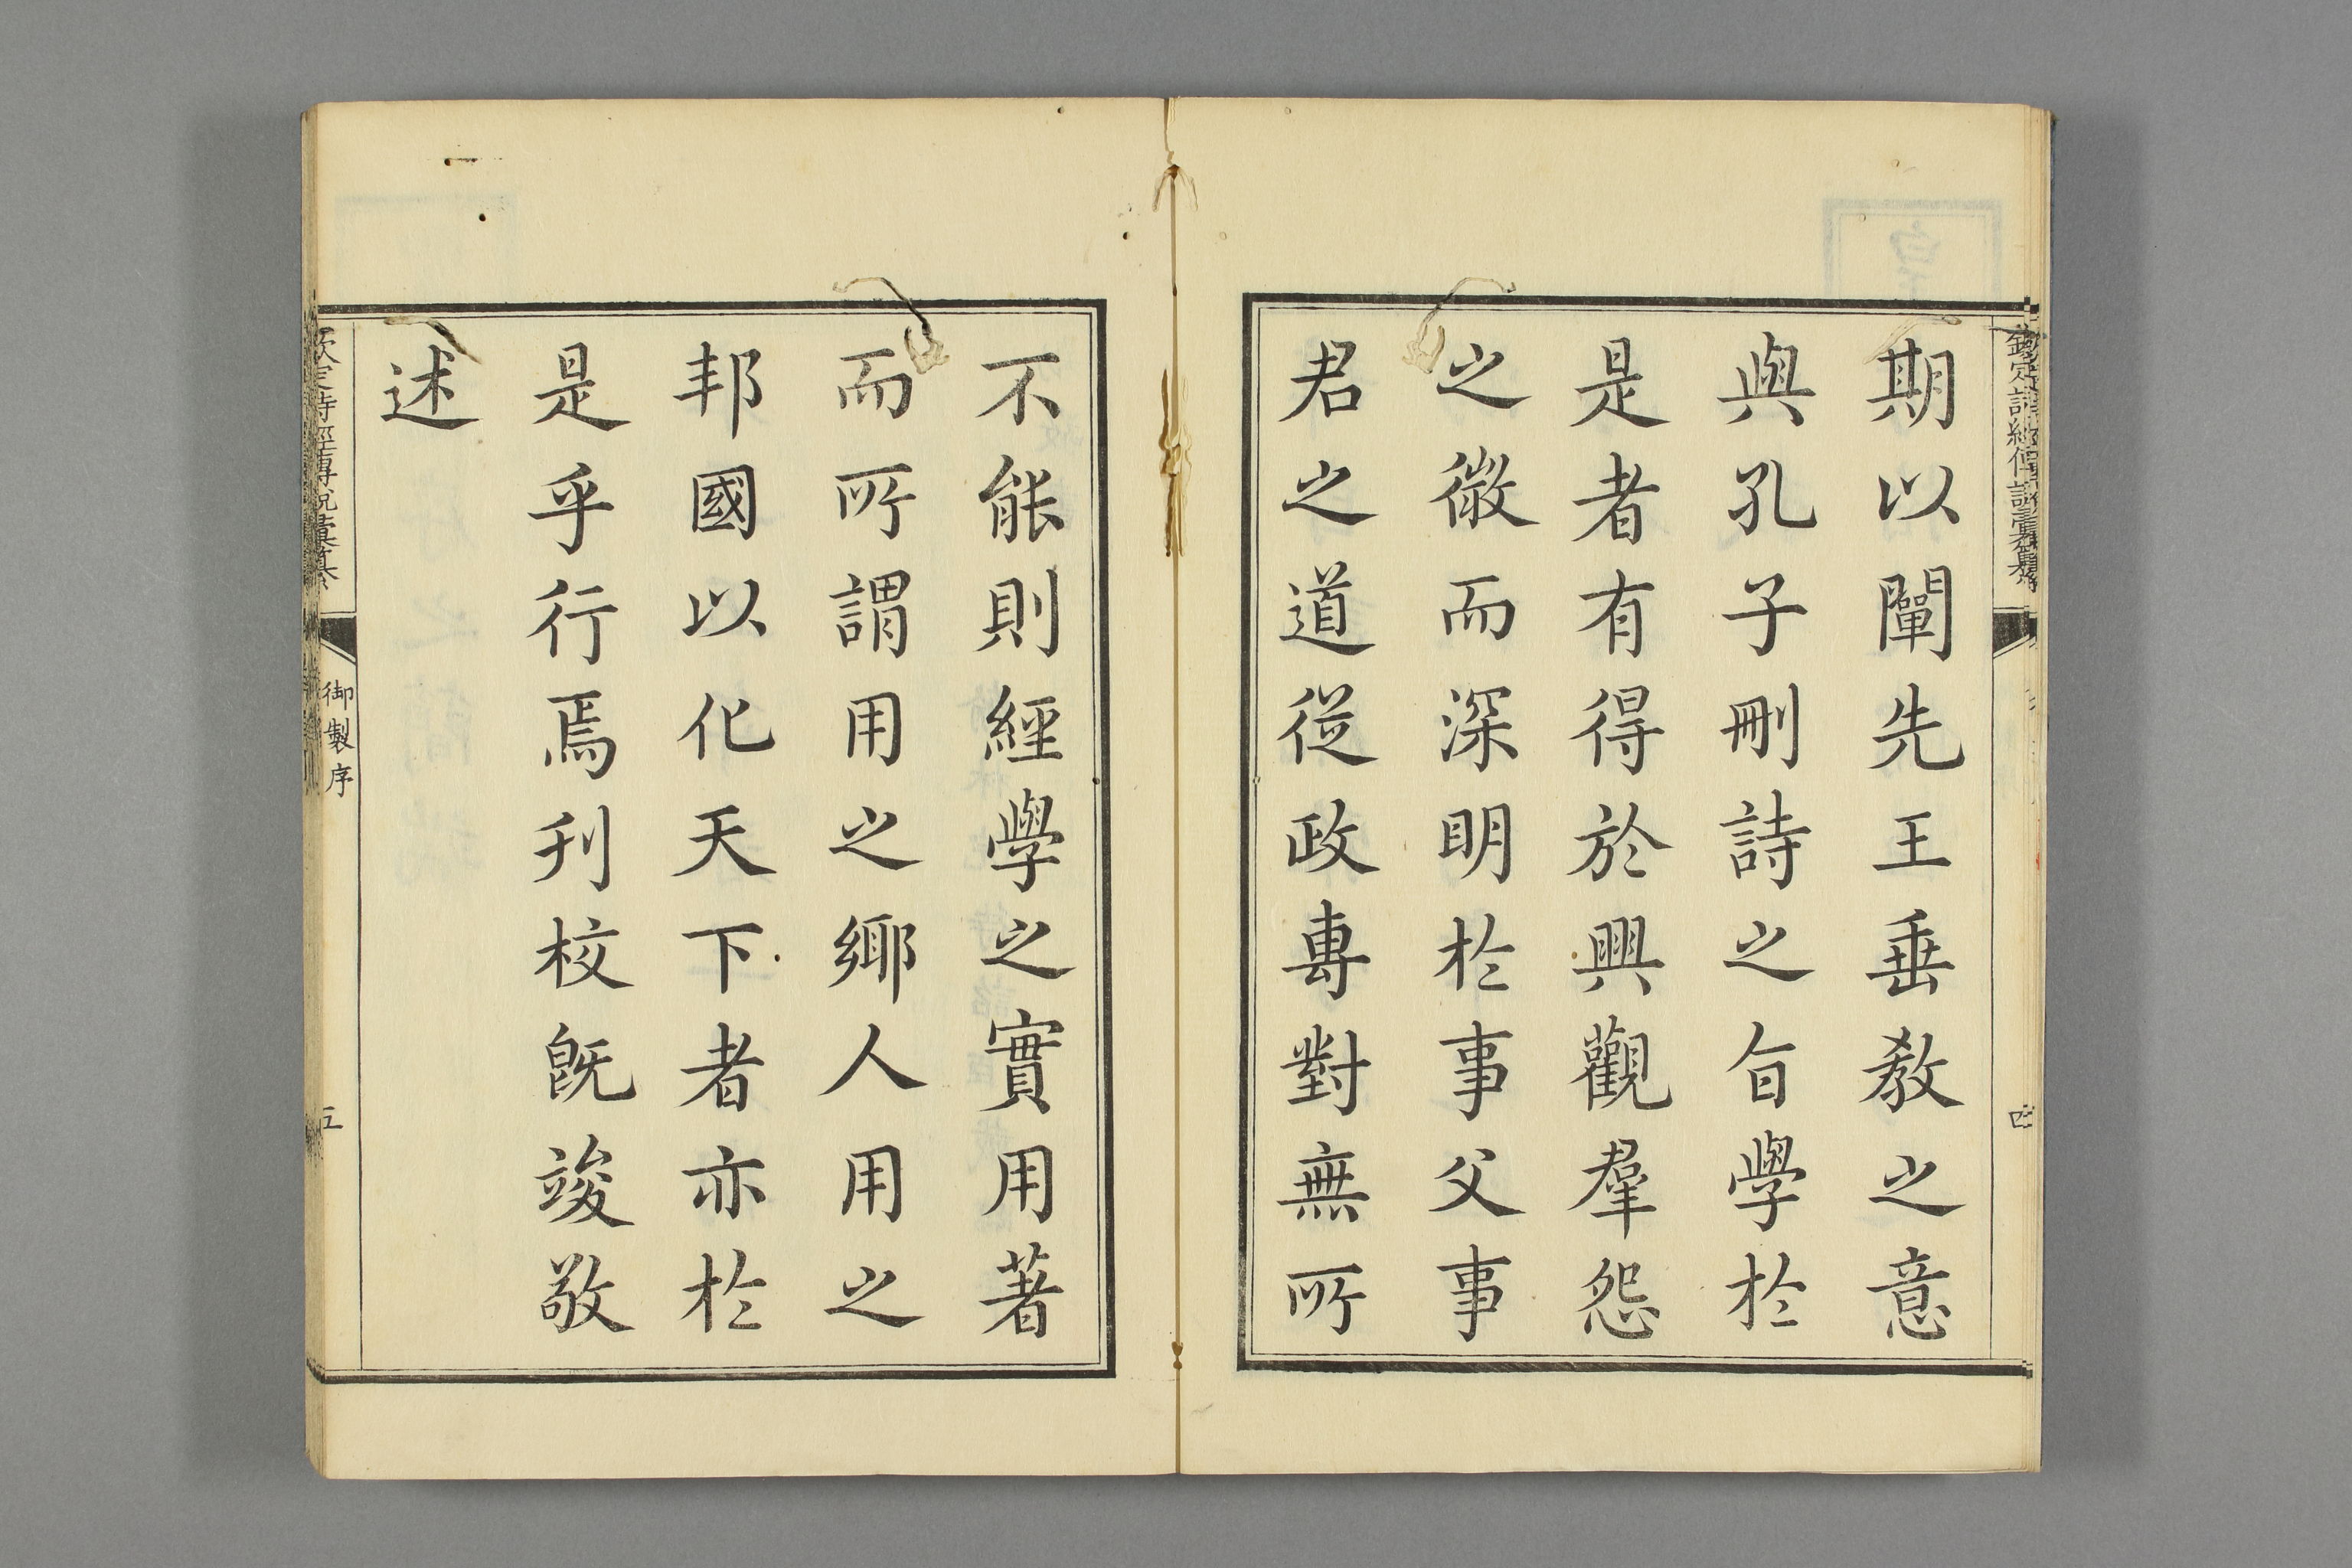 期以闡先王垂教之意
與孔子刪詩之㫖學於
是者有得於興觀羣怨
之微而深明於事父事
君之道從政專對無所
不能則經學之實用著
而所謂用之鄉人用之
邦國以化天下者亦於
是乎行焉刋校旣竣敬
述
欽定詩經傳說彙纂
御製序
五